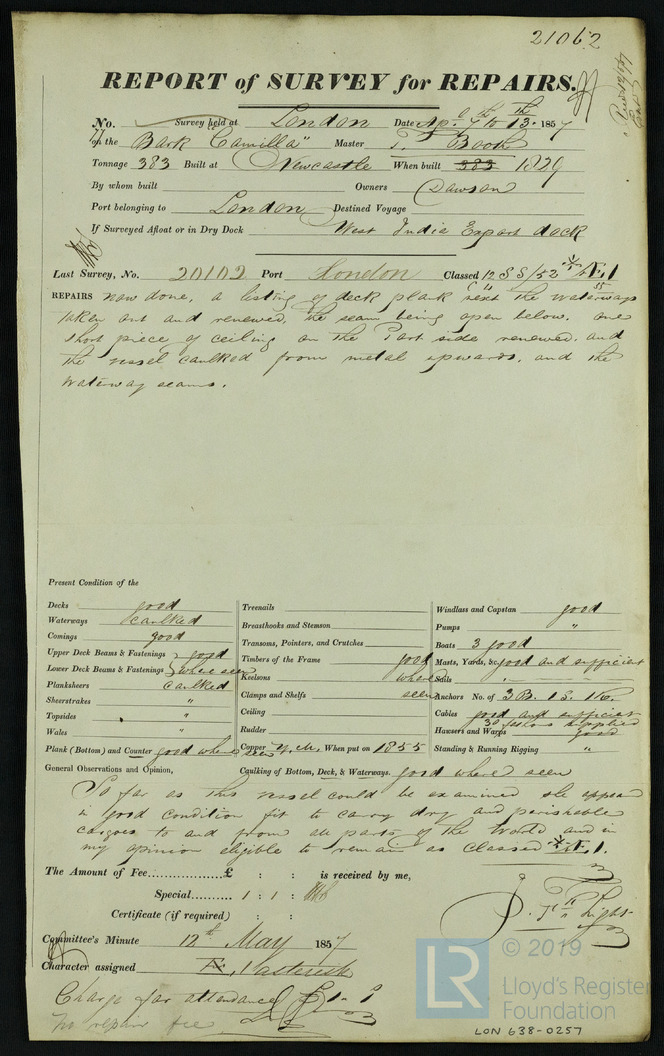 21062
REPORT of SURVEY for REPAIRS.
No. Survey held at London Date Ap. 9th to 13th 1857
on the Bark "Camilla" Master T. Booth
Tonnage 383 Built at Newcastle When built 383 1829
By whom built Owners Dawson
Port belonging to London Destined Voyage
If Surveyed Afloat or in Dry Dock West India Export dock
Last Survey, No. 20102 Port London Classed 12 SS/52 * Æ 1
55
REPAIRS now done, a listing of deck plank next the waterways
taken out and renewed, the seam being open below. one
short piece of ceiling on the Port side renewed. and
the vessel caulked from metal upwards. and the
waterway seams.
Present Condition of the
Decks good
Waterways caulked
Comings good
Upper Deck Beams & Fastenings good
Lower Deck Beams & Fastenings where seen
Planksheers caulked
Sheerstrakes "
Topsides "
Wales "
Plank (Bottom) and Counter good where seen
Treenails
Breasthooks and Stemson
Transoms, Pointers, and Crutches
Timbers of the Frame good
Keelsons where
Clamps and Shelfs seen
Ceiling
Rudder
Copper Y.M. When put on 1855
Windlass and Capstan good
Pumps "
Boats 3 good
Masts, Yards, &c good and sufficient
Sails
Anchors No. of 3B. 1S. 1K.
Cables good and sufficient
supplied
Hawsers and Warps good
Standing & Running Rigging "
General Observations and Opinion, Caulking of Bottom, Deck, & Waterways. good where seen
So far as this vessel could be examined she appears
in good condition fit to carry dry and perishable
cargoes to and from all parts of the World and in
my opinion eligible to remain as classed * Æ 1.
The Amount of Fee £ : : is received by me,
Special 1 : 1 :
Certificate (if required) : :
Committee's Minute 12th May 1857
Character assigned Æ 1 asterisk
Charge for attendance £1. 1
No repair fee
© 2019
LR
Lloyd's Register
Foundation
LON 638-0257